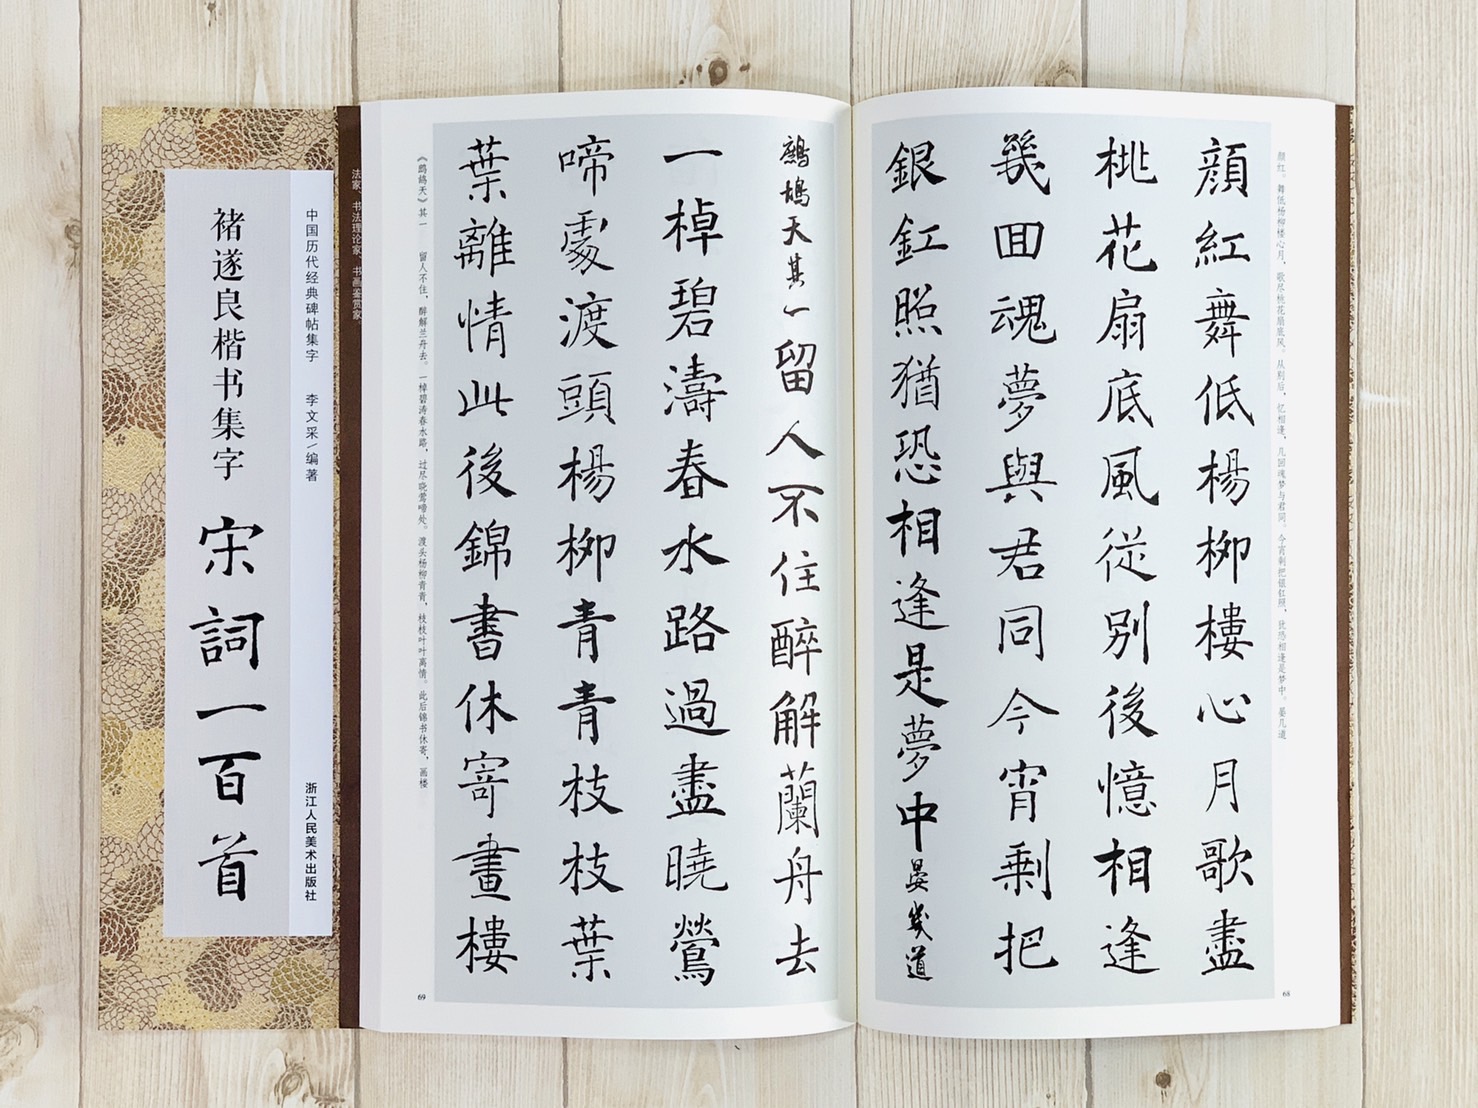 顔紅舞低楊柳樓心月歌盡
桃花扇底風從別後憶相逢
幾回魂夢與君同今宵剩把
銀釭照猶恐相逢是夢中晏幾道
鷓鴣天其一留人不住醉解蘭舟去
一棹碧濤春水路過盡曉鶯
啼處渡頭楊柳青青枝枝葉
葉離情此後錦書休寄畫樓
颜红。舞低杨柳楼心月,歌尽桃花扇底风。从别后,忆相逢,几回魂梦与君同。今宵剩把银釭照,犹恐相逢是梦中。晏几道
68
《鹧鸪天》其一 留人不住,醉解兰舟去。一棹碧涛春水路,过尽晓莺啼处。渡头杨柳青青,枝枝叶叶离情。此后锦书休寄,画楼
69
法家、书法理论家、书画鉴赏家。
中国历代经典碑帖集字 李文采/编著 浙江人民美术出版社
褚遂良楷书集字 宋詞一百首